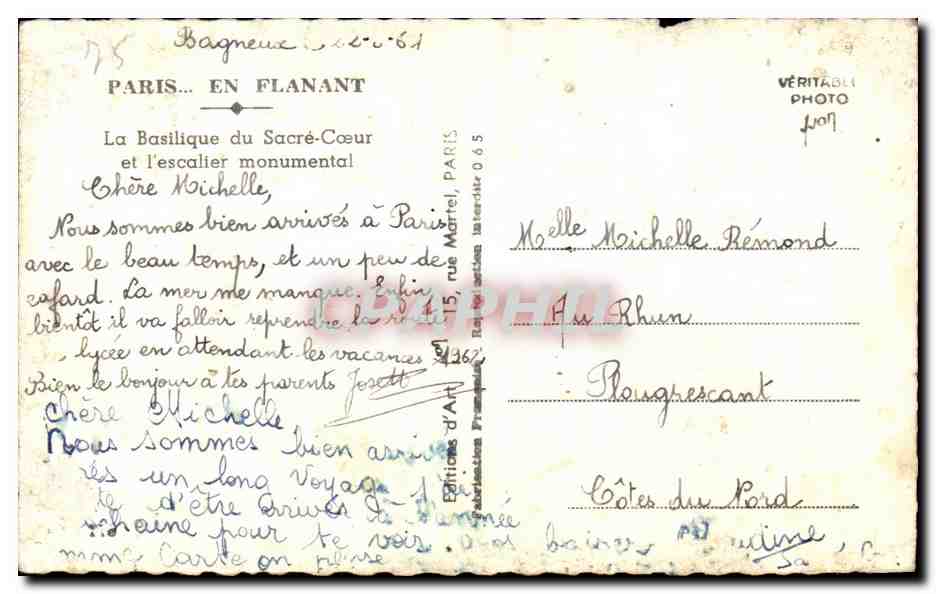 75
Bagneux
PARIS... EN FLANANT
La Basilique du Sacré-Cœur
et l'escalier monumental
Chère Michelle,
Nous sommes bien arrivés à Paris
avec le beau temps, et un peu de
cafard. La mer me manque. Enfin
bientôt il va falloir reprendre la route
lycée en attendant les vacances 1962
Bien le bonjour à tes parents Josett
Chère Michelle
Nous sommes bien
un long voyage
d'être arrivés
chaine pour te voir
carte on
Editions d'Art 15, rue Martel, PARIS
Fabrication Française Reproduction interdite 065
VÉRITABLE
PHOTO
Melle Michelle Rémond
Au Rhun
Plougrescant
Côtes du Nord
CPAPHIL